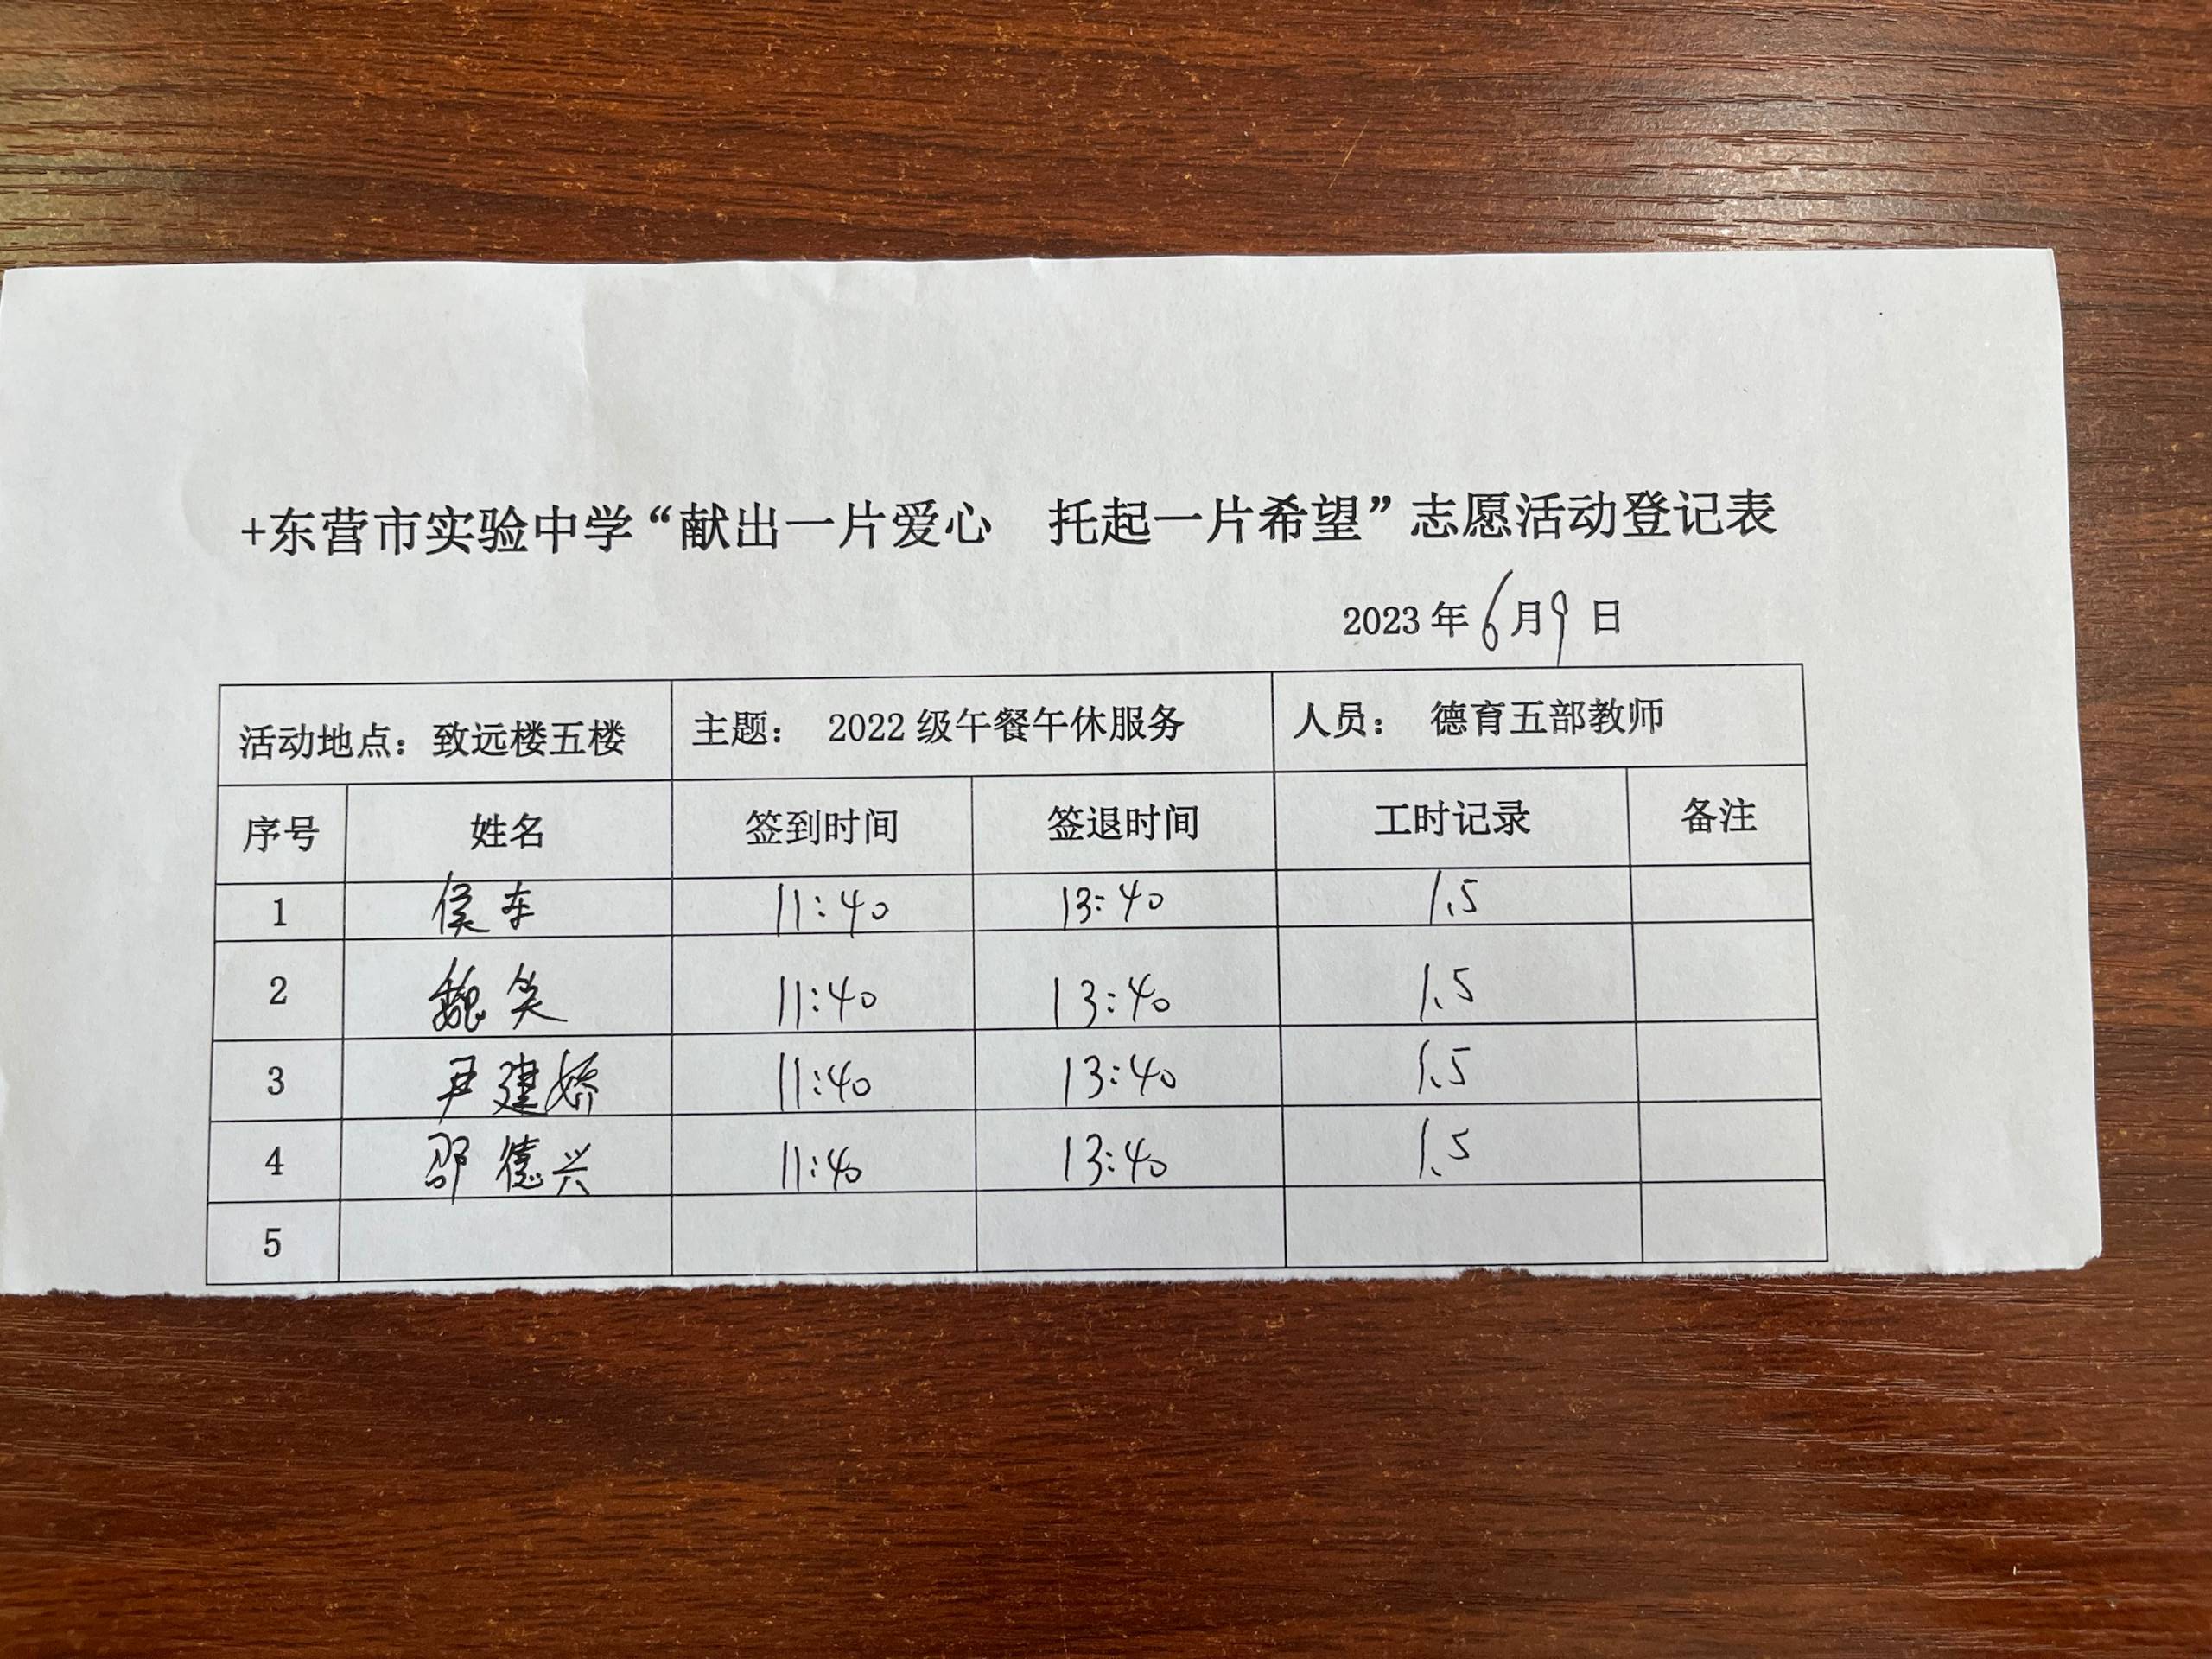 +东营市实验中学“献出一片爱心 托起一片希望”志愿活动登记表
2023年6月9日
活动地点：致远楼五楼 主题： 2022级午餐午休服务 人员： 德育五部教师
序号 姓名 签到时间 签退时间 工时记录 备注
1 侯 11:40 13:40 1.5
2 魏笑 11:40 13:40 1.5
3 尹建娇 11:40 13:40 1.5
4 邵德兴 11:40 13:40 1.5
5